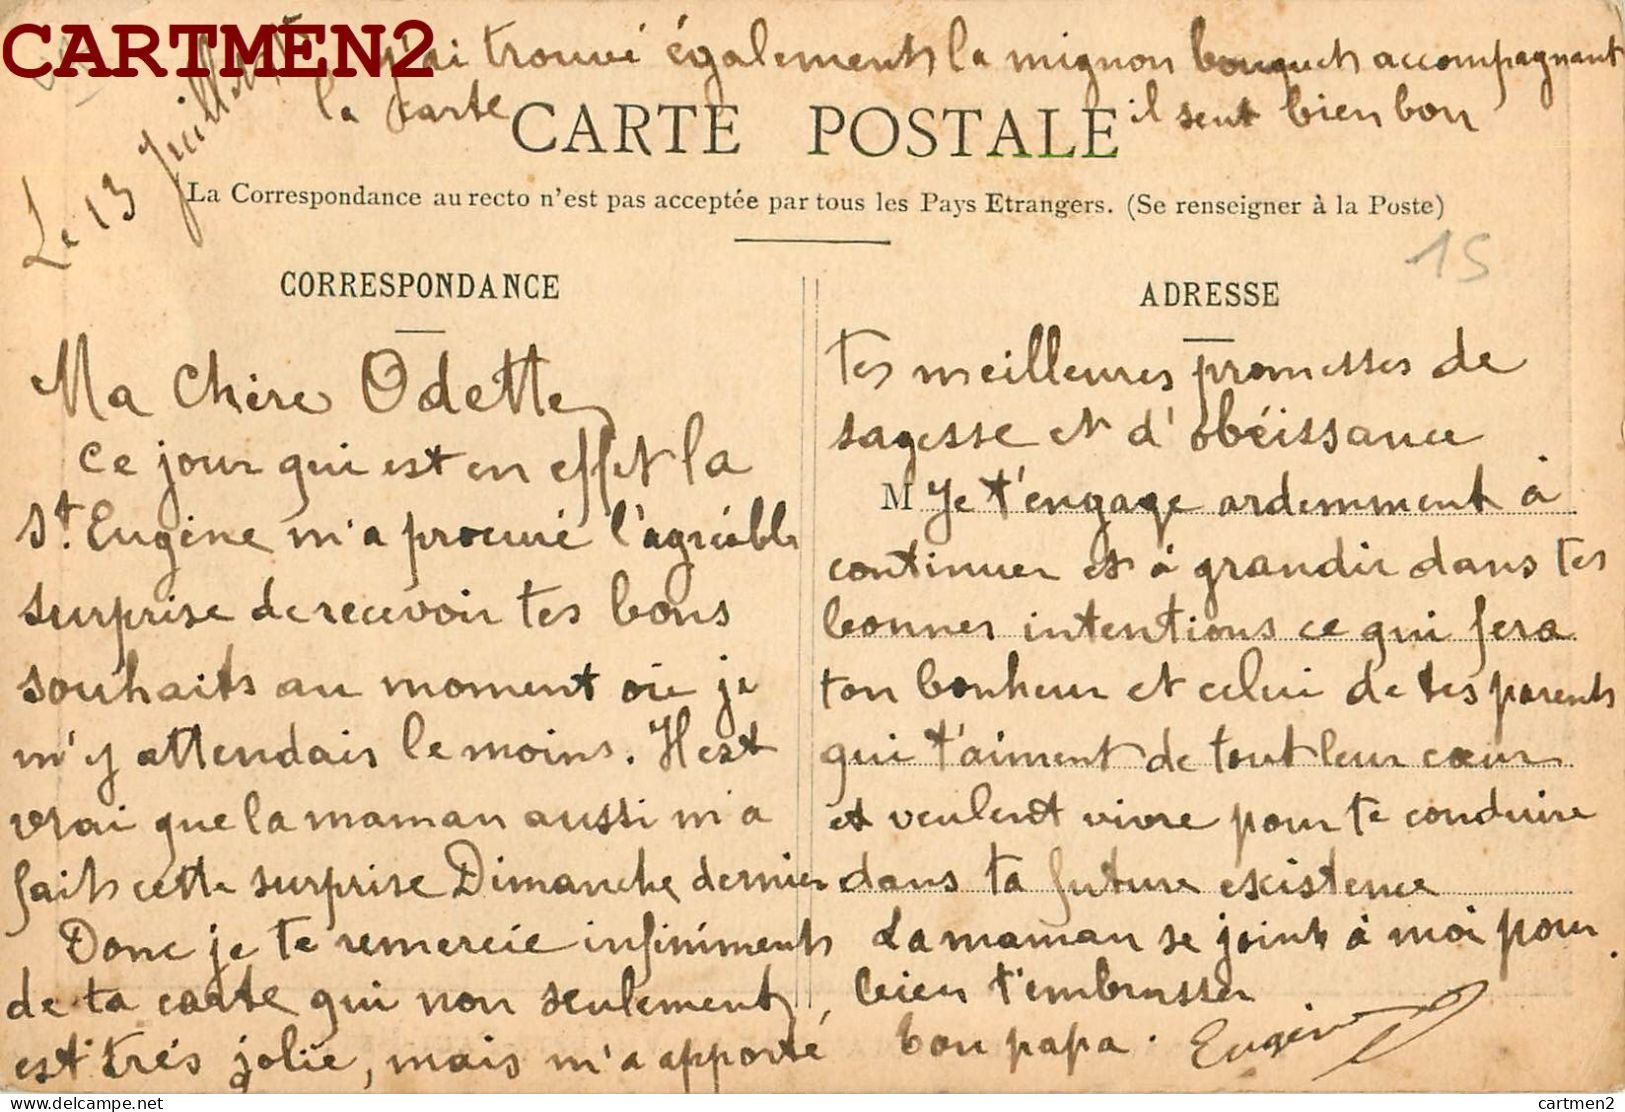 CARTMEN2
j'ai trouvé également la mignon bouquet accompagnant
la carte
il sent bien bon
Le 13 Juillet
CARTE POSTALE
La Correspondance au recto n'est pas acceptée par tous les Pays Etrangers. (Se renseigner à la Poste)
15
CORRESPONDANCE
Ma Chère Odette
Ce jour qui est en effet la
St. Eugène m'a procuré l'agréable
surprise de recevoir tes bons
souhaits au moment où je
m'y attendais le moins. Il est
vrai que la maman aussi m'a
fait cette surprise Dimanche dernier
Donc je te remercie infiniment
de ta carte qui non seulement,
est très jolie, mais m'a apporté
ADRESSE
tes meilleures promesses de
sagesse et d'obéissance
M Je t'engage ardemment à
continuer et à grandir dans tes
bonnes intentions ce qui fera
ton bonheur et celui de tes parents
qui t'aiment de tout leur cœur
et veulent vivre pour te conduire
dans ta future existence
La maman se joint à moi pour
bien t'embrasser
bon papa. Eugène
Delcampe.net
cartmen2